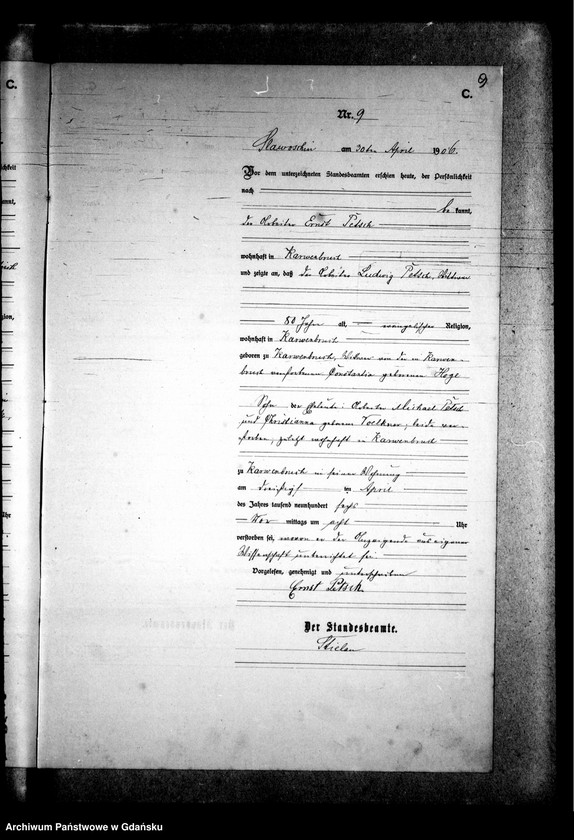 C.
C.
9
Nr. 9
Slawoschin am 30ten April 1906.
Vor dem unterzeichneten Standesbeamten erschien heute, der Persönlichkeit
nach
be kannt,
der Arbeiter Ernst Petsch
wohnhaft in Karwenbruch
und zeigte an, daß der Arbeiter Ludwig Petsch, Wittwer
80 Jahre alt, evangelischer Religion,
wohnhaft in Karwenbruch
geboren zu Karwenbruch, Wittwer von der in Karwen-
bruch verstorbenen Constantia geborenen
Sohn der Eheleute: Arbeiter Michael Petsch
und Christianna geborene Voelkner, beide ver-
storben, zuletzt wohnhaft in Karwenbruch
zu Karwenbruch in seiner Wohnung
am dreißigsten April
des Jahres tausend neunhundert sechs
Vor mittags um acht Uhr
verstorben sei, wovon er der Anzeigende aus eigener
Wissenschaft unterrichtet sei
Vorgelesen, genehmigt und unterschrieben
Ernst Petsch.
Der Standesbeamte.
Archiwum Państwowe w Gdańsku